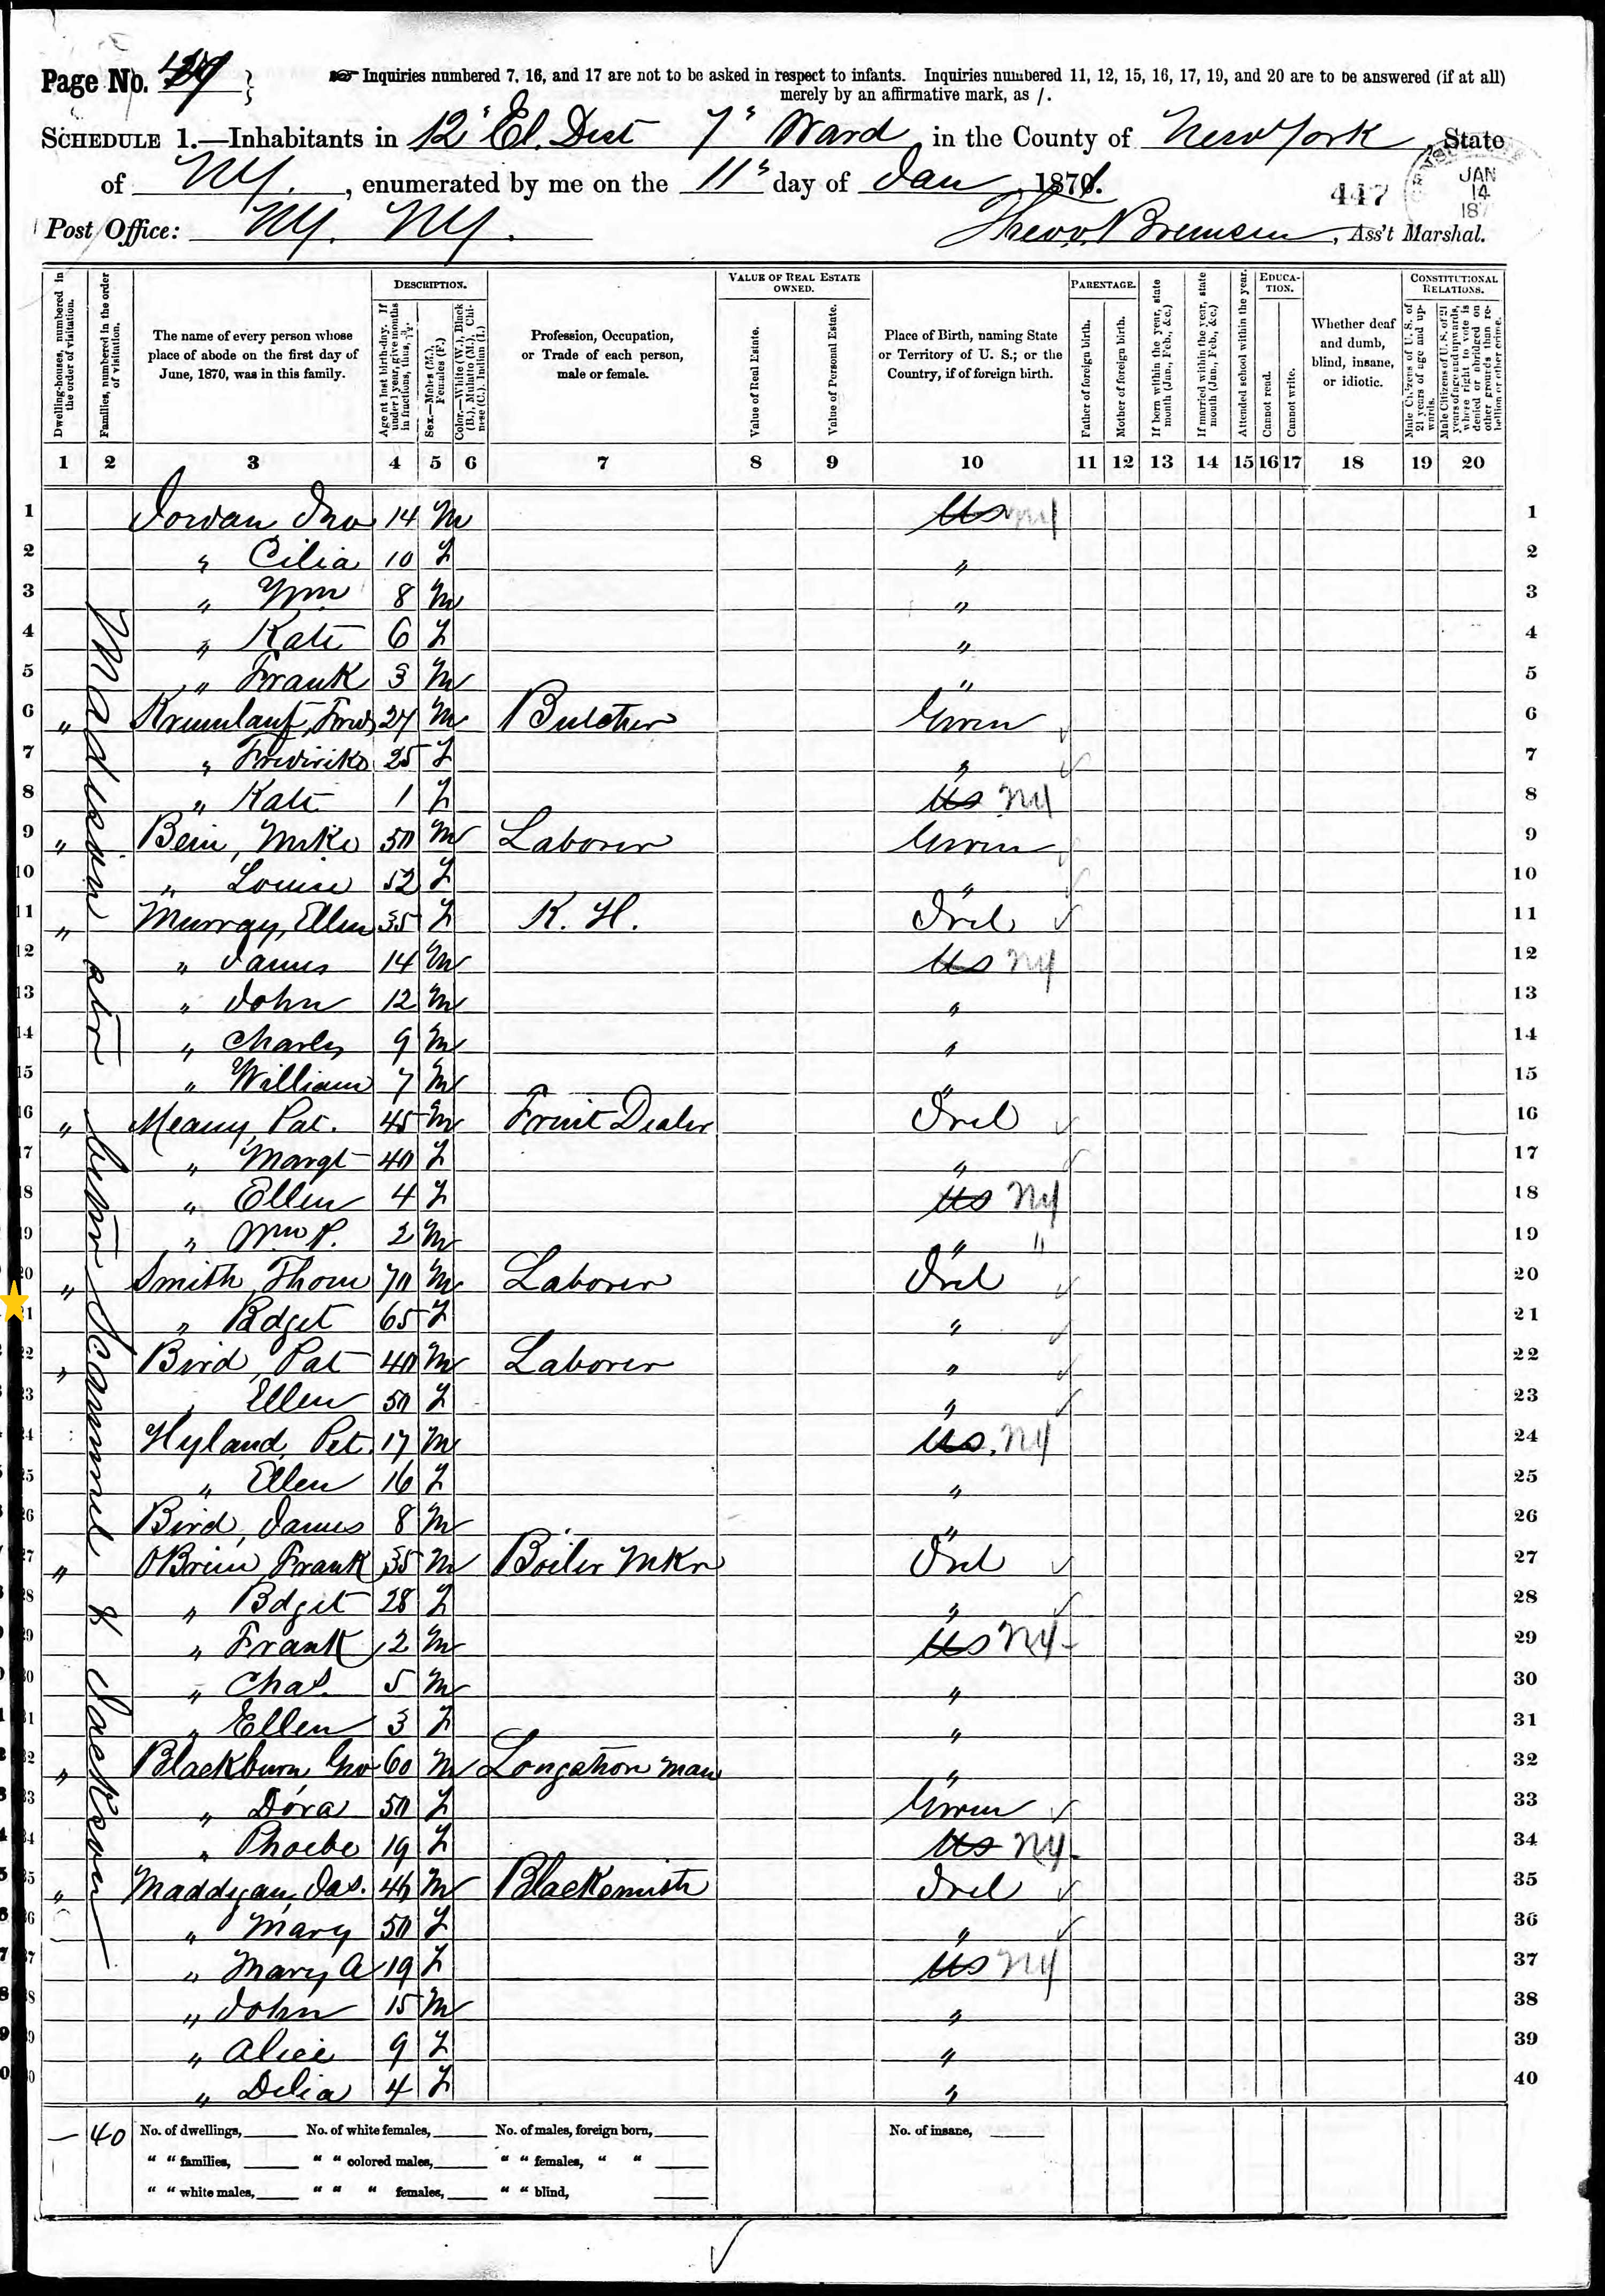 Page No. 39
Inquiries numbered 7, 16, and 17 are not to be asked in respect to infants. Inquiries numbered 11, 12, 15, 16, 17, 19, and 20 are to be answered (if at all)
merely by an affirmative mark, as /.
SCHEDULE 1.—Inhabitants in 12" El. Dist 7" Ward, in the County of New York, State
of NY., enumerated by me on the 11" day of Jan, 1871.
447
JAN
14
187
Post Office: NY. NY. Ass't Marshal.
DESCRIPTION.
VALUE OF REAL ESTATE OWNED.
PARENTAGE.
EDUCATION.
CONSTITUTIONAL RELATIONS.
Dwelling-houses, numbered in the order of visitation.
Families, numbered in the order of visitation.
The name of every person whose place of abode on the first day of June, 1870, was in this family.
Age at last birth-day. If under 1 year, give months in fractions, thus, 3/12.
Sex.—Males (M.), Females (F.)
Color.—White (W.), Black (B.), Mulatto (M.), Chinese (C.), Indian (I.)
Profession, Occupation, or Trade of each person, male or female.
Value of Real Estate.
Value of Personal Estate.
Place of Birth, naming State or Territory of U. S.; or the Country, if of foreign birth.
Father of foreign birth.
Mother of foreign birth.
If born within the year, state month (Jan., Feb., &c.)
If married within the year, state month (Jan., Feb., &c.)
Attended school within the year.
Cannot read.
Cannot write.
Whether deaf and dumb, blind, insane, or idiotic.
Male Citizens of U. S. of 21 years of age and upwards.
Male Citizens of U. S. of 21 years of age and upwards, where right to vote is denied or abridged on other grounds than rebellion or other crime.
1 2 3 4 5 6 7 8 9 10 11 12 13 14 15 16 17 18 19 20
Madison str betw Scammel & Jackson
1 Jordan Jno 14 M US NY 1
2 " Cilia 10 F " 2
3 " Wm 8 M " 3
4 " Kate 6 F " 4
5 " Frank 3 M " 5
6 " Krumlauf, Fred 27 M Butcher Germ 6
7 " Fredirika 25 F " 7
8 " Kate 1 F US NY 8
9 " Bein, Mike 50 M Laborer Germ 9
10 " Louise 52 F " 10
11 " Murray, Ellen 35 F K. H. Irel 11
12 " James 14 M US NY 12
13 " John 12 M " 13
14 " Charles 9 M " 14
15 " William 7 M " 15
16 " Meany Pat. 45 M Fruit Dealer Irel 16
17 " Margt 40 F " 17
18 " Ellen 4 F US NY 18
19 " Wm P. 2 M " " 19
20 " Smith, Thom 70 M Laborer Irel 20
21 " Bdget 65 F " 21
22 " Bird, Pat 40 M Laborer " 22
23 " Ellen 50 F " 23
24 Hyland, Pet. 17 M US. NY 24
25 " Ellen 16 F " 25
26 Bird, James 8 M " 26
27 " OBrien Frank 35 M Boiler Mkr Irel 27
28 " Bdget 28 F " 28
29 " Frank 12 M US NY 29
30 " Chas. 5 M " 30
31 " Ellen 3 F " 31
32 " Blackburn Geo 60 M Longshore man " 32
33 " Dora 50 F Germ 33
34 " Phoebe 19 F US NY. 34
35 " Maddigan, Jas. 46 M Blacksmith Irel 35
36 " Mary 50 F " 36
37 " Mary A 19 F US NY 37
38 " John 15 M " 38
39 " Alice 9 F " 39
40 " Delia 4 F " 40
— 40 No. of dwellings, No. of white females, No. of males, foreign born, No. of insane,
" " families, " " colored males, " " females, " "
" " white males, " " " females, " " blind,